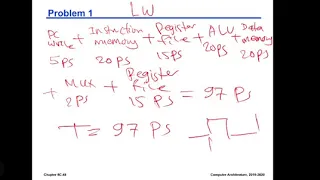 Problem 1
LW
PC write + Instruction memory + Register file + ALU + Data memory
5ps 20ps 15ps 20ps 20ps
+ Mux + Register file
2ps 15 ps = 97 Ps
T = 97 Ps
Chapter 4C.48 Computer Architecture, 2019-2020